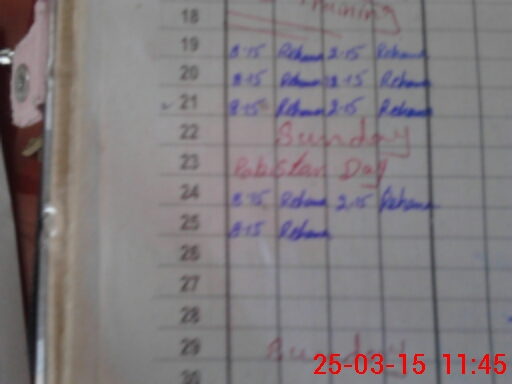 Training
18
19 8-15 Rehana 2-15 Rehana
20 8-15 Rehana 2-15 Rehana
21 8-15 Rehana 2-15 Rehana
22 Sunday
23 Pakistan Day
24 8-15 Rehana 2-15 Rehana
25 8-15 Rehana
26
27
28
29 Sunday
30
25-03-15 11:45